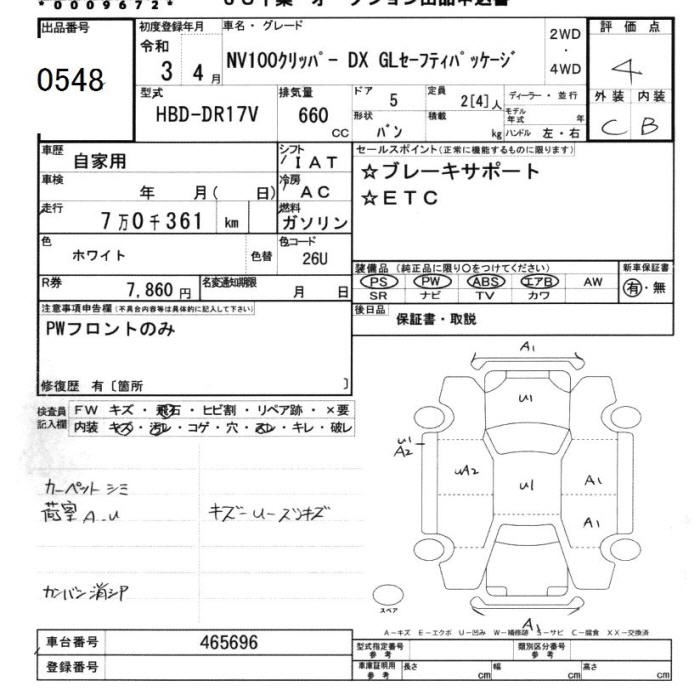 *0009672*
出品番号
0548
初度登録年月
令和
3 4月
車名・グレード
NV100クリッパー DX GLセーフティパッケージ
2WD
・
4WD
評価点
4
外装 内装
C B
型式
HBD-DR17V
排気量
660
CC
ドア
5
定員
2[4]人
ディーラー・並行
形状
バン
積載
kg
モデル年式
年
ハンドル 左・右
車歴
自家用
シフト
IAT
車検
年 月( 日)
冷房
AC
走行
7万0千361 km
燃料
ガソリン
色
ホワイト
色替
色コード
26U
R券
7,860円
名変通知期限
月 日
セールスポイント(正常に機能するものに限ります)
☆ブレーキサポート
☆ETC
装備品 (純正品に限り〇をつけてください)
PS PW ABS エアB AW
SR ナビ TV カワ
新車保証書
有・無
後日品
保証書・取説
注意事項申告欄(不具合内容等は具体的に記入して下さい)
PWフロントのみ
修復歴 有〔箇所 〕
検査員
記入欄
FW キズ・飛石・ヒビ割・リペア跡・×要
内装 キズ・汚レ・コゲ・穴・スレ・キレ・破レ
カーペットシミ
荷室A-U
キズ-U-スリキズ
カンバン消シア
A1
U1
U1
A2
UA2
U1
A1
A1
A1
スペア
A-キズ E-エクボ U-凹み W-補修跡 S-サビ C-腐食 XX-交換済
車台番号
465696
登録番号
型式指定番号
参考
類別区分番号
参考
車庫証明用
参考
長さ cm
幅 cm
高さ cm